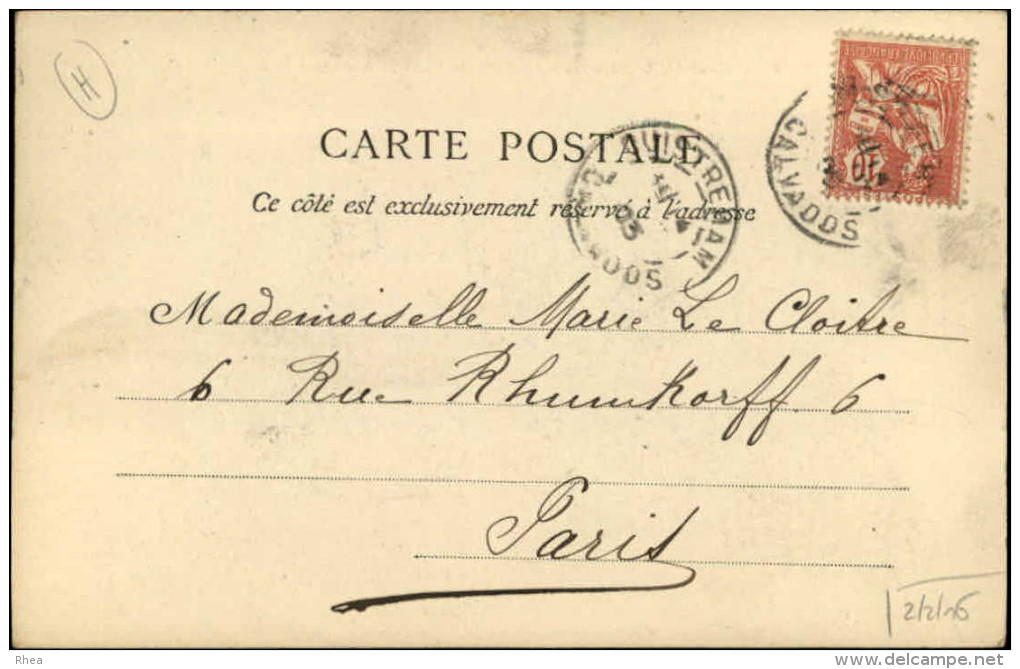 H
CARTE POSTALE
Ce côté est exclusivement réservé à l'adresse
OUISTREHAM
03
CALVADOS
CALVADOS
10
Mademoiselle Marie Le Cloitre
6 Rue Rhumkorff 6
Paris
2/2/16
Rhea
www.delcampe.net